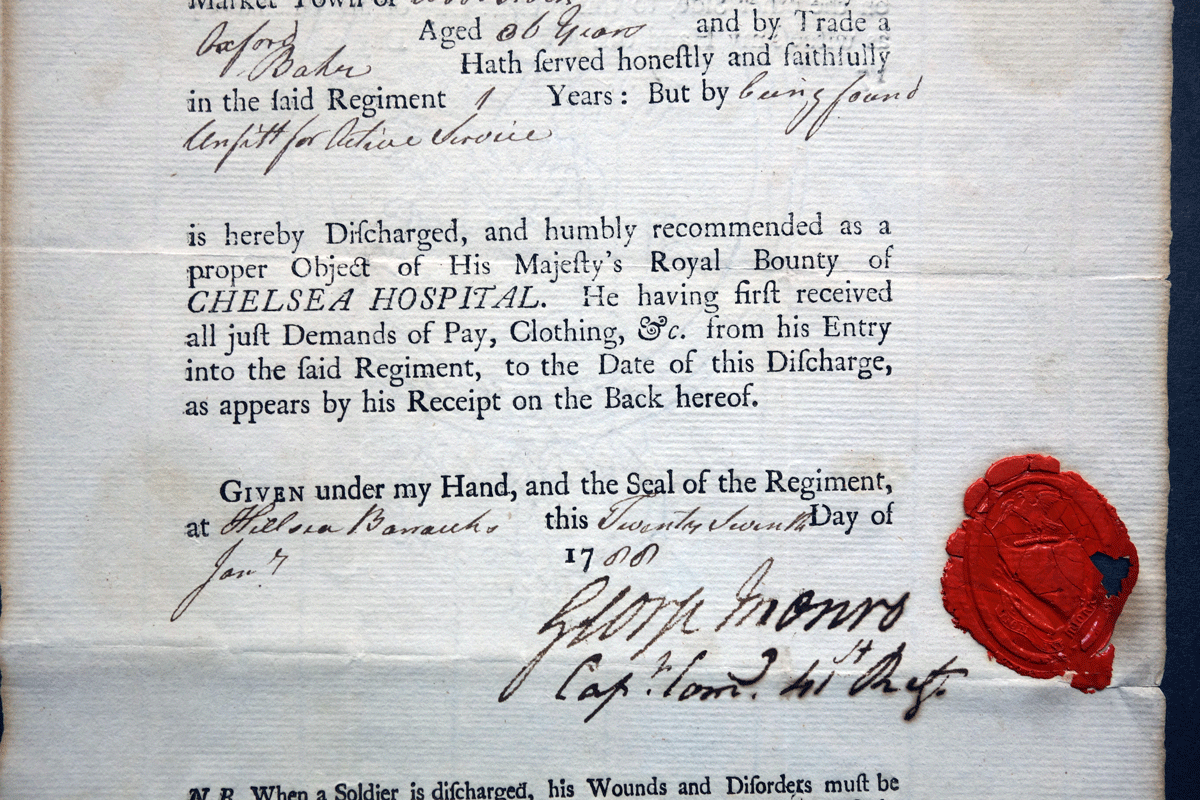 Market Town of
Oxford Aged 36 Years and by Trade a
Baker Hath ſerved honeſtly and faithfully
in the ſaid Regiment 1 Years: But by being found
Unfitt for Active Service
is hereby Diſcharged, and humbly recommended as a
proper Object of His Majeſty's Royal Bounty of
CHELSEA HOSPITAL. He having firſt received
all juſt Demands of Pay, Clothing, &c. from his Entry
into the ſaid Regiment, to the Date of this Diſcharge,
as appears by his Receipt on the Back hereof.
GIVEN under my Hand, and the Seal of the Regiment,
at Hillsea Barracks this Twenty Seventh Day of
Jany 1788
George Monro
Capt. Comd. 41st Regt.
N.B. When a Soldier is diſcharged, his Wounds and Diſorders muſt be